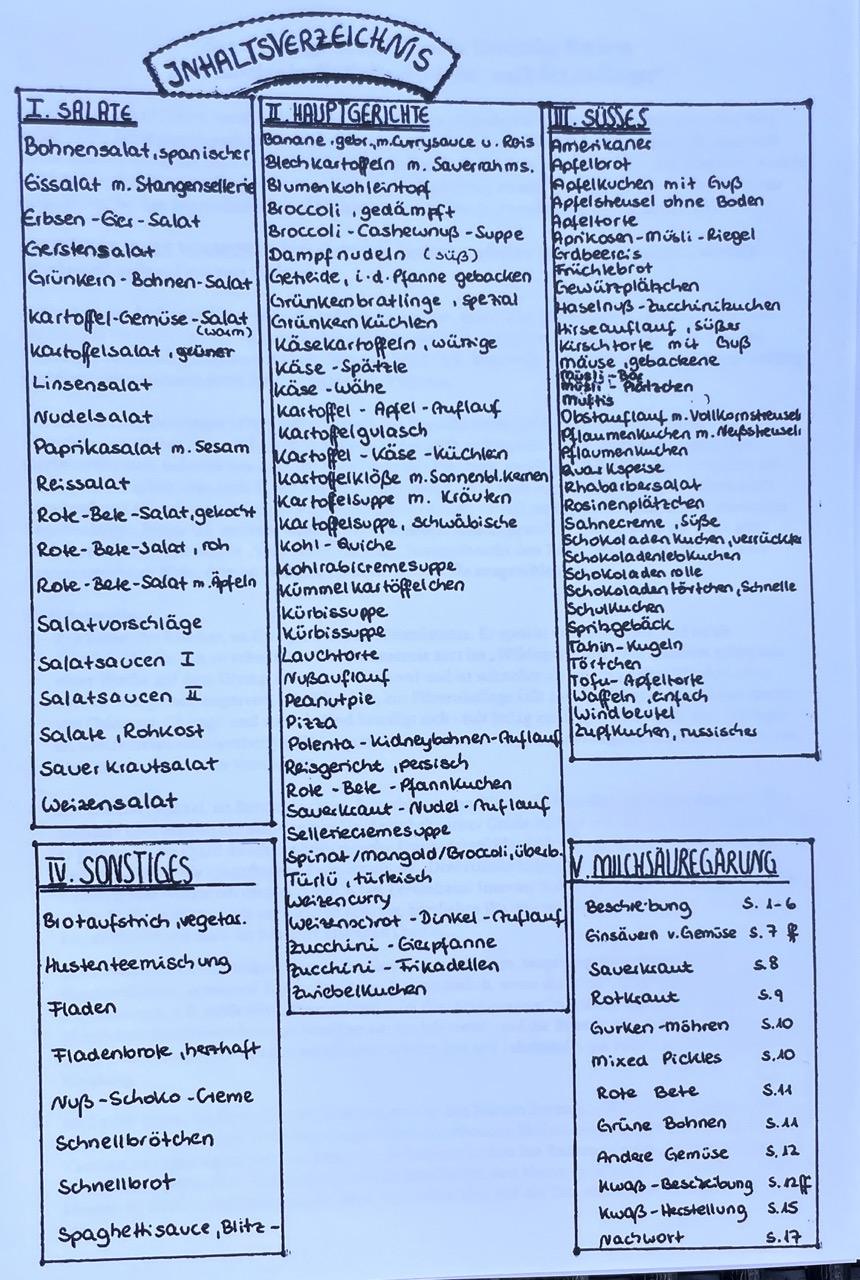 INHALTSVERZEICHNIS
I. SALATE
Bohnensalat, spanischer
Eissalat m. Stangensellerie
Erbsen-Eier-Salat
Gerstensalat
Grünkern-Bohnen-Salat
Kartoffel-Gemüse-Salat
(warm)
Kartoffelsalat, grüner
Linsensalat
Nudelsalat
Paprikasalat m. Sesam
Reissalat
Rote-Bete-Salat, gekocht
Rote-Bete-Salat, roh
Rote-Bete-Salat m. Äpfeln
Salatvorschläge
Salatsaucen I
Salatsaucen II
Salate, Rohkost
Sauerkrautsalat
Weizensalat
II. HAUPTGERICHTE
Banane, gebr., m. Currysauce u. Reis
Blechkartoffeln m. Sauerrahms.
Blumenkohleintopf
Broccoli, gedämpft
Broccoli-Cashewnuß-Suppe
Dampfnudeln (süß)
Geteide, i.d. Pfanne gebacken
Grünkernbratlinge, spezial
Grünkernküchlen
Käsekartoffeln, würzige
Käse-Spätzle
Käse-Wähe
Kartoffel-Apfel-Auflauf
Kartoffelgulasch
Kartoffel-Käse-Küchlen
Kartoffelklöße m. Sonnenbl.kernen
Kartoffelsuppe m. Kräutern
Kartoffelsuppe, schwäbische
Kohl-Quiche
Kohlrabicremesuppe
Kümmelkartöffelchen
Kürbissuppe
Kürbissuppe
Lauchtorte
Nußauflauf
Peanutpie
Pizza
Polenta-Kidneybohnen-Auflauf
Reisgericht, persisch
Rote-Bete-Pfannkuchen
Sauerkraut-Nudel-Auflauf
Selleriecremesuppe
Spinat/Mangold/Broccoli, überb.
Türlü, türkisch
Weizencurry
Weizenschrot-Dinkel-Auflauf
Zucchini-Eierpfanne
Zucchini-Frikadellen
Zwiebelkuchen
III. SÜSSES
Amerikaner
Apfelbrot
Apfelkuchen mit Guß
Apfelsteusel ohne Boden
Apfeltorte
Aprikosen-Müsli-Riegel
Erdbeereis
Früchtebrot
Gewürzplätzchen
Haselnuß-Zucchinikuchen
Hirseauflauf, süßer
Kirschtorte mit Guß
Mäuse, gebackene
Müsli-
Müsli-Plätzchen
Muffis
Obstauflauf m. Vollkornsteusel
Pflaumenkuchen m. Neißsteuseln
Pflaumenkuchen
Quarkspeise
Rhabarbersalat
Rosinenplätzchen
Sahnecreme, Süße
Schokoladenkuchen, verrückter
Schokoladenlebkuchen
Schokoladenrolle
Schokoladentörtchen, Schnelle
Schulkuchen
Spritzgebäck
Tahin-Kugeln
Törtchen
Tofu-Apfeltorte
Waffeln, einfach
Windbeutel
Zupfkuchen, russischer
IV. SONSTIGES
Brotaufstrich, vegetar.
Hustenteemischung
Fladen
Fladenbrote, herzhaft
Nuß-Schoko-Creme
Schnellbrötchen
Schnellbrot
Spaghettisauce, Blitz-
V. MILCHSÄUREGÄRUNG
Beschreibung S. 1-6
Einsäuern v. Gemüse S. 7 ff
Sauerkraut S.8
Rotkraut S.9
Gurken-Möhren S.10
Mixed Pickles S.10
Rote Bete S.11
Grüne Bohnen S.11
Andere Gemüse S.12
Kwaß-Bescheibung S.12ff
Kwaß-Herstellung S.15
Nachwort S.17